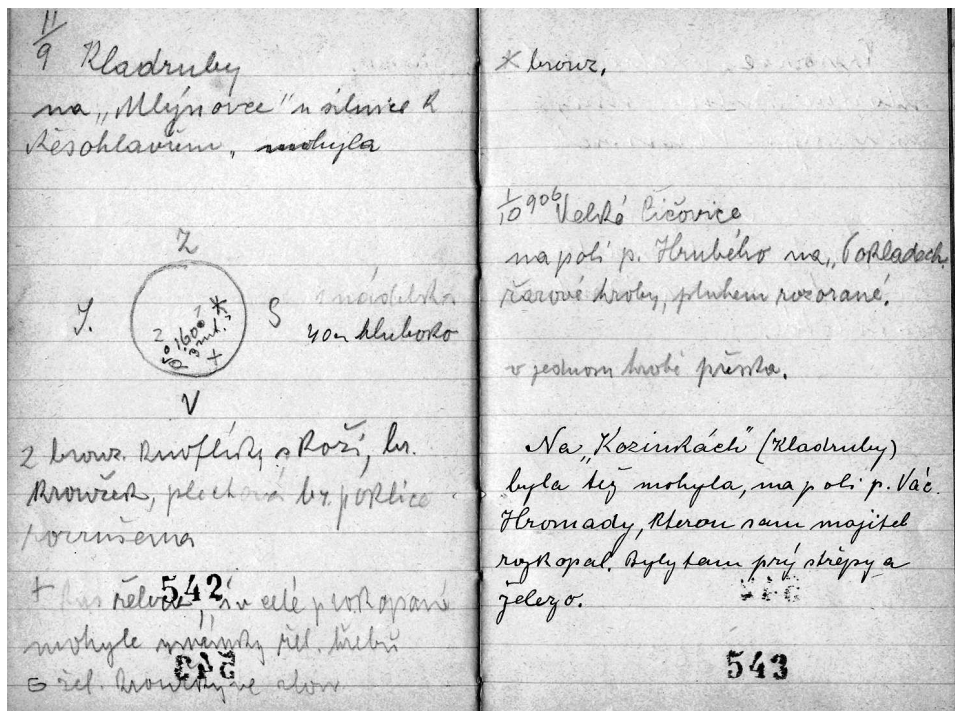 11/9 Kladruby
na „Mlýnovce" u silnice k
Řesohlavům, mohyla
Z
J.
S
V
1 *
2
160
3 mk.
+
1 nádobka
40 cm hluboko
2 bronz. knoflíky s koží, br.
kroužek, plochá br. poklice
porušena
+ 542
mohyle žel. hřebů
žel. kroužky ve
* bronz.
1/10 906 Velké Čičovice
na poli p. Hrubého na „Pokladech
žárové hroby, pluhem rozorané.
v jednom hrobě přeska.
Na „Kozinkách" (Kladruby)
byla též mohyla, na poli p. Vác.
Hromady, kterou sam majitel
rozkopal. Byly tam prý střepy a
železo.
543